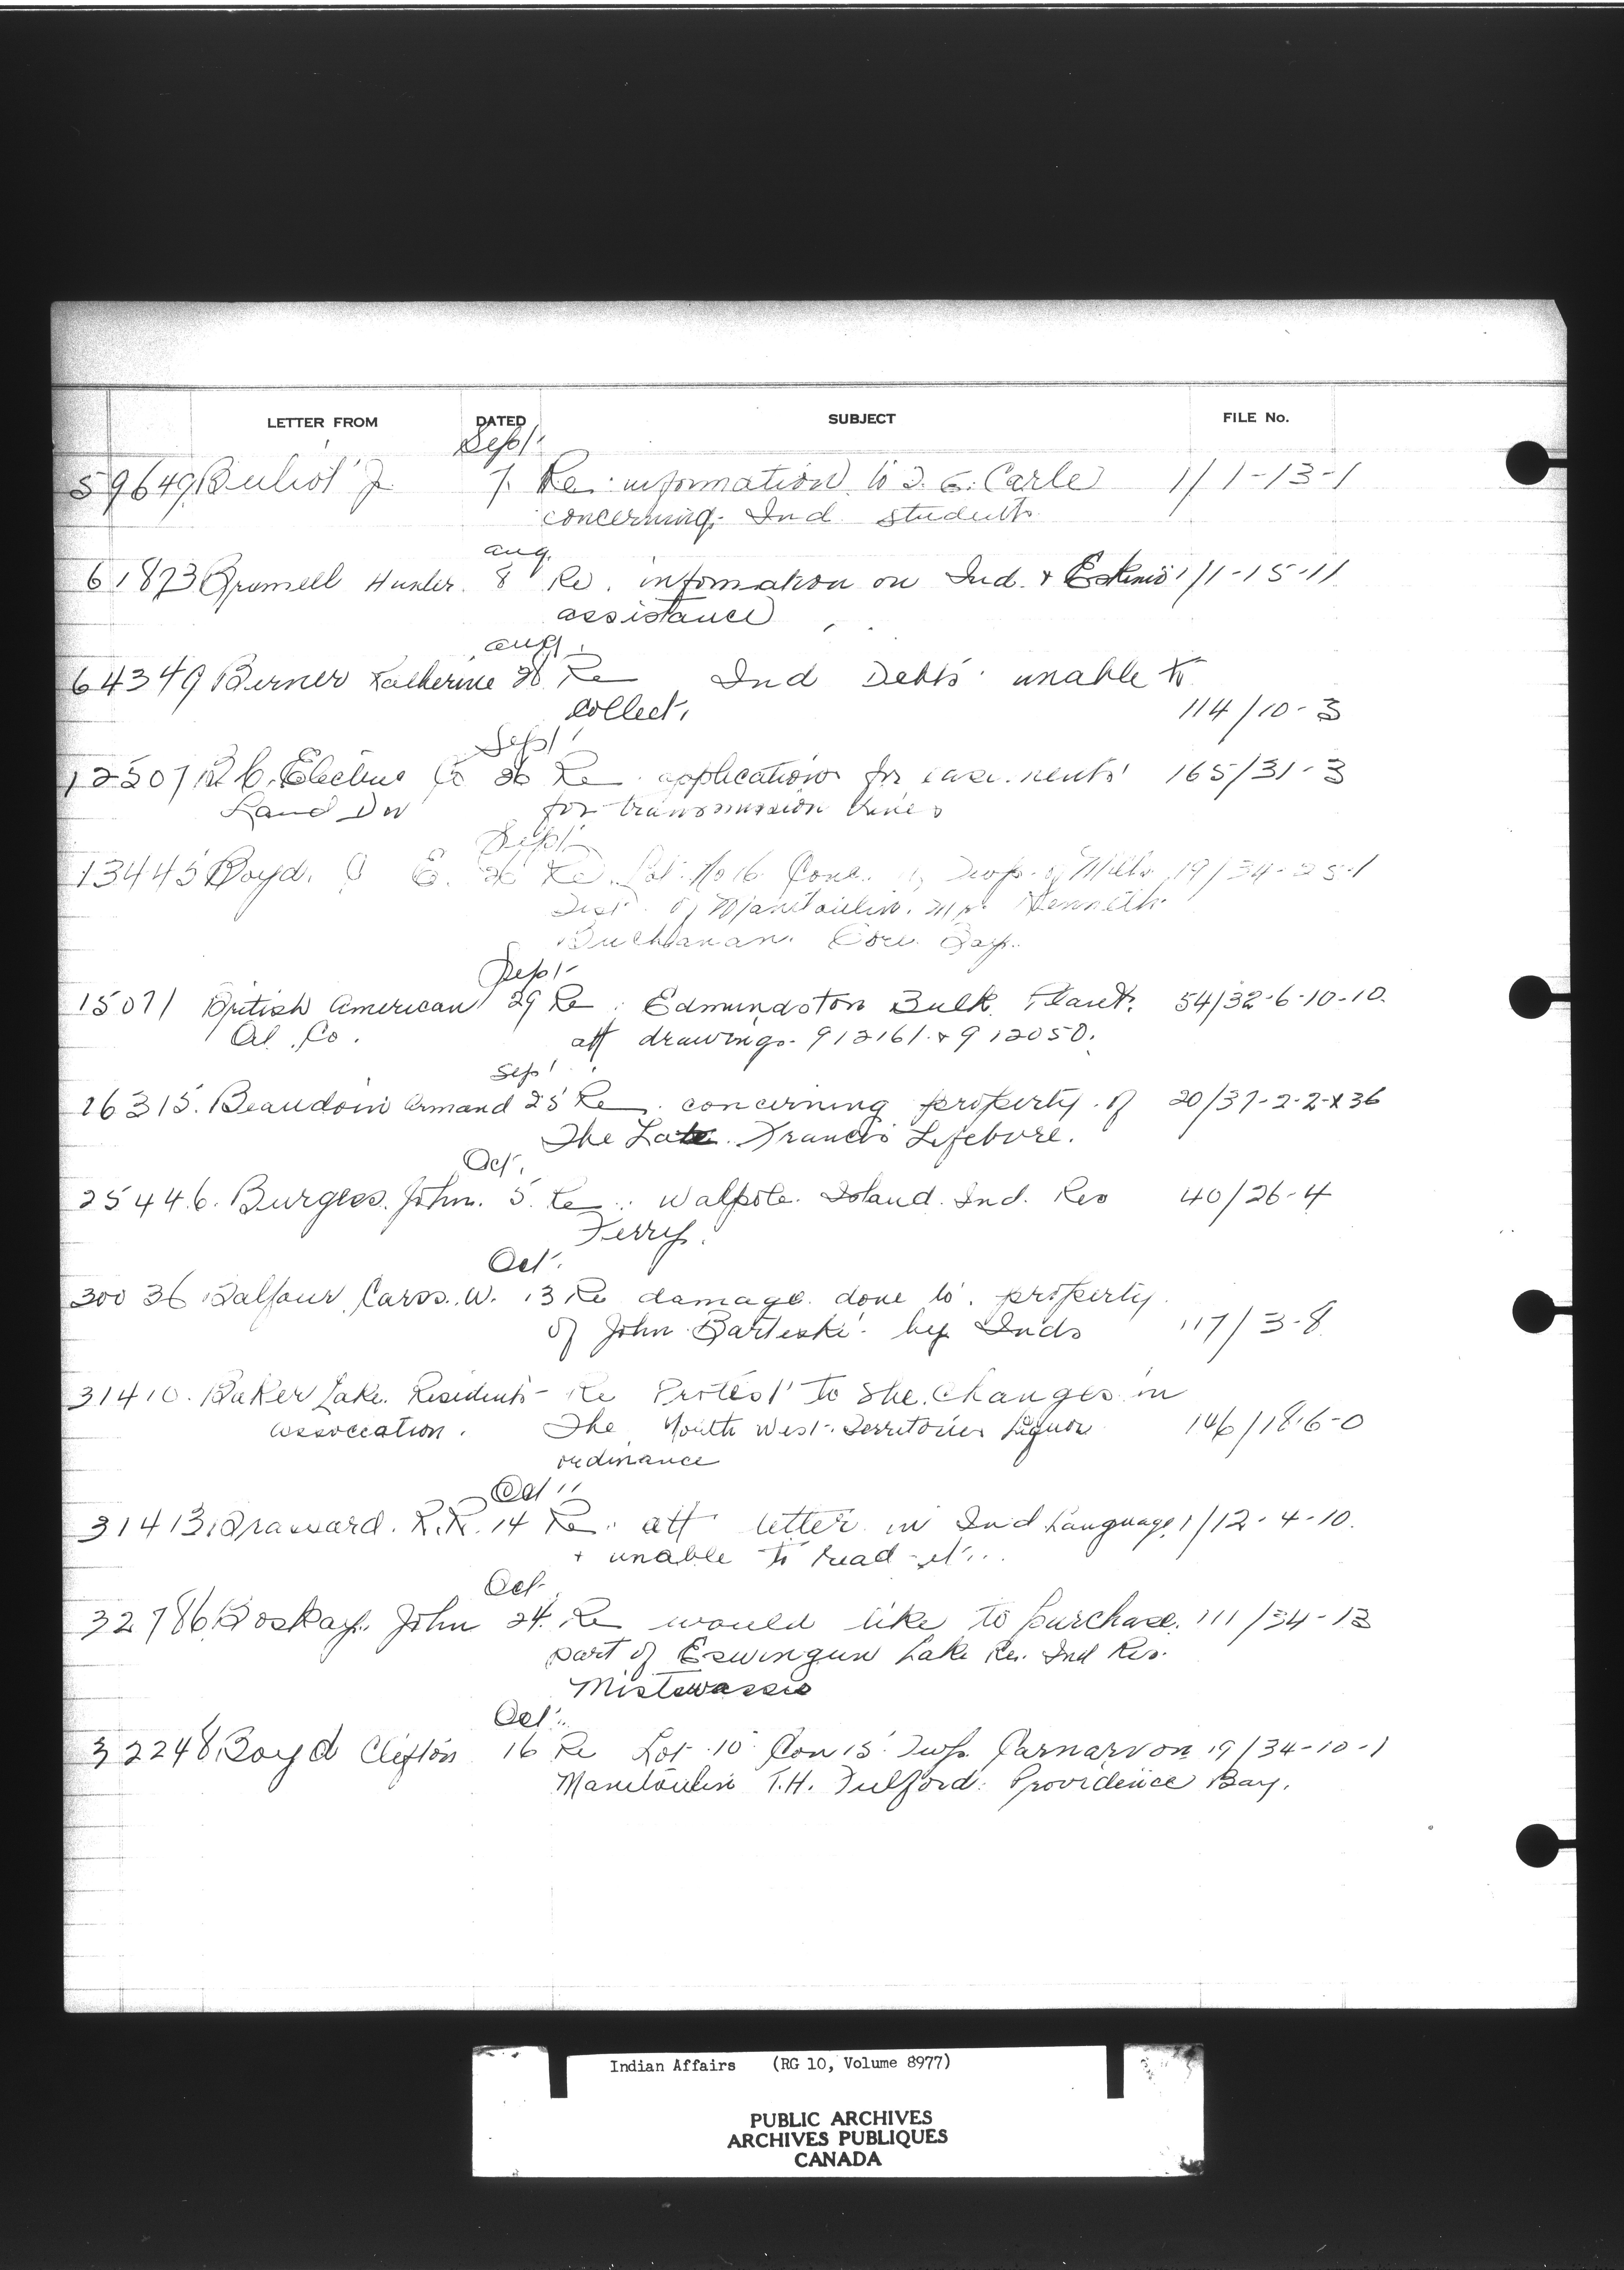 LETTER FROM DATED SUBJECT FILE No.
Sept
59649 J. 7. Re: information to J. E. Carle 1/1-13-1
concerning Ind. students
Aug.
61873 Hunter. 8 Re. information on Ind. + Eskimo 1/1-15-11
assistance
Aug.
64349 Berner Katherine 28 Re Ind Debts unable to
collect. 114/10-3
Sept
12507 B.C. Electric Co 26 Re application for easements 165/31-3
Land Div for transmission lines
Sept
13445 Boyd. E. 26 Re. Lot No 16 Conc. Twp. of Mills 19/34-25-1
Dist. of Manitoulin. Mr. Kenneth
Buchanan. Bay.
Sept
15071 British American 29 Re: Edmundston Bulk Plant. 54/32-6-10-10.
Oil Co. att drawings. 912161 + 912050.
Sept
16315. Beaudoin Armand 25 Re. concerning property of 20/37-2-2-x36
The Late Francis Lefebvre.
Oct.
25446. Burgess. John. 5. Re: Walpole Island. Ind. Res 40/26-4
Ferry.
Oct.
30036 Balfour Carss. W. 13 Re damage done to property
of John by Inds 117/3-8
31410. Baker Lake. Residents - Re Protest to the changes in
association. The North West Territories Liquor 146/18-6-0
ordinance
Oct
31413 Brassard. R.R. 14 Re. att letter in Ind Language 1/12-4-10.
+ unable to read it.
Oct
32786 Boskay. John 24. Re would like to purchase. 111/34-13
part of Lake Res. Ind Res.
Mistawassis
Oct.
32248 Boyd Clifton 16 Re Lot 10 Con 15 Twp. Carnarvon 19/34-10-1
Manitoulin T.H. Fulford: Providence Bay.
Indian Affairs (RG 10, Volume 8977)
PUBLIC ARCHIVES
ARCHIVES PUBLIQUES
CANADA